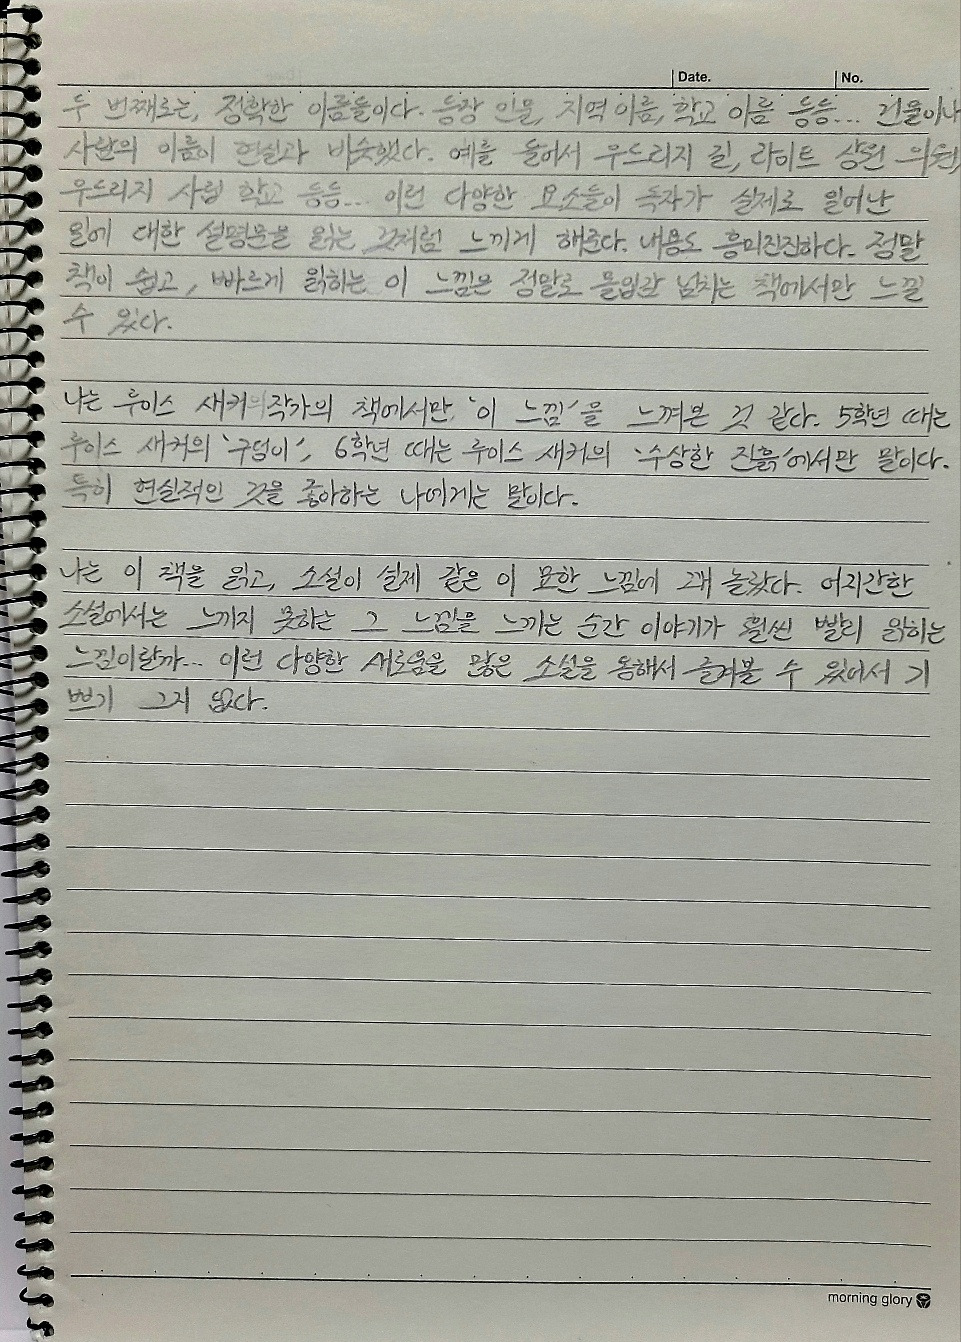 Date.
No.
두 번째로는, 정확한 이름들이다. 등장 인물, 지역 이름, 학교 이름 등등... 건물이나
사람의 이름이 현실과 비슷했다. 예를 들어서 우드리지 길, 라이트 상원 의원,
우드리지 사립 학교 등등... 이런 다양한 요소들이 독자가 실제로 일어난
일에 대한 설명문을 읽는 것처럼 느끼게 해준다. 내용도 흥미진진하다. 정말
책이 쉽고, 빠르게 읽히는 이 느낌은 정말로 몰입감 넘치는 책에서만 느낄
수 있다.
나는 루이스 새커의 작가의 책에서만 '이 느낌'을 느껴본 것 같다. 5학년 때는
루이스 새커의 '구덩이', 6학년 때는 루이스 새커의 '수상한 진흙'에서만 말이다.
특히 현실적인 것을 좋아하는 나에게는 말이다.
나는 이 책을 읽고, 소설이 실제 같은 이 묘한 느낌에 꽤 놀랐다. 어지간한
소설에서는 느끼지 못하는 그 느낌을 느끼는 순간 이야기가 훨씬 빨리 읽히는
느낌이랄까... 이런 다양한 새로움을 많은 소설을 통해서 즐겨볼 수 있어서 기
쁘기 그지 없다.
morning glory